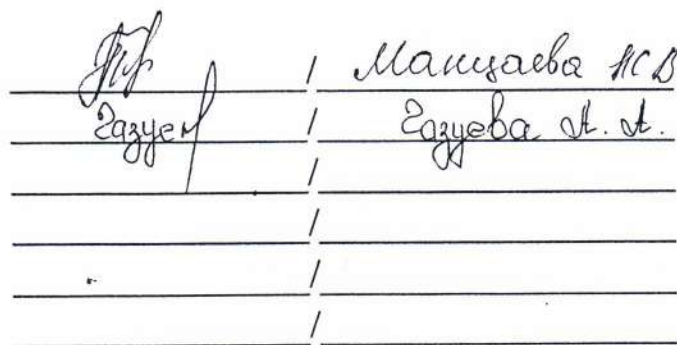 / Манцаева Ж В
Газуев / Газуева А. А.
/
/
/
/